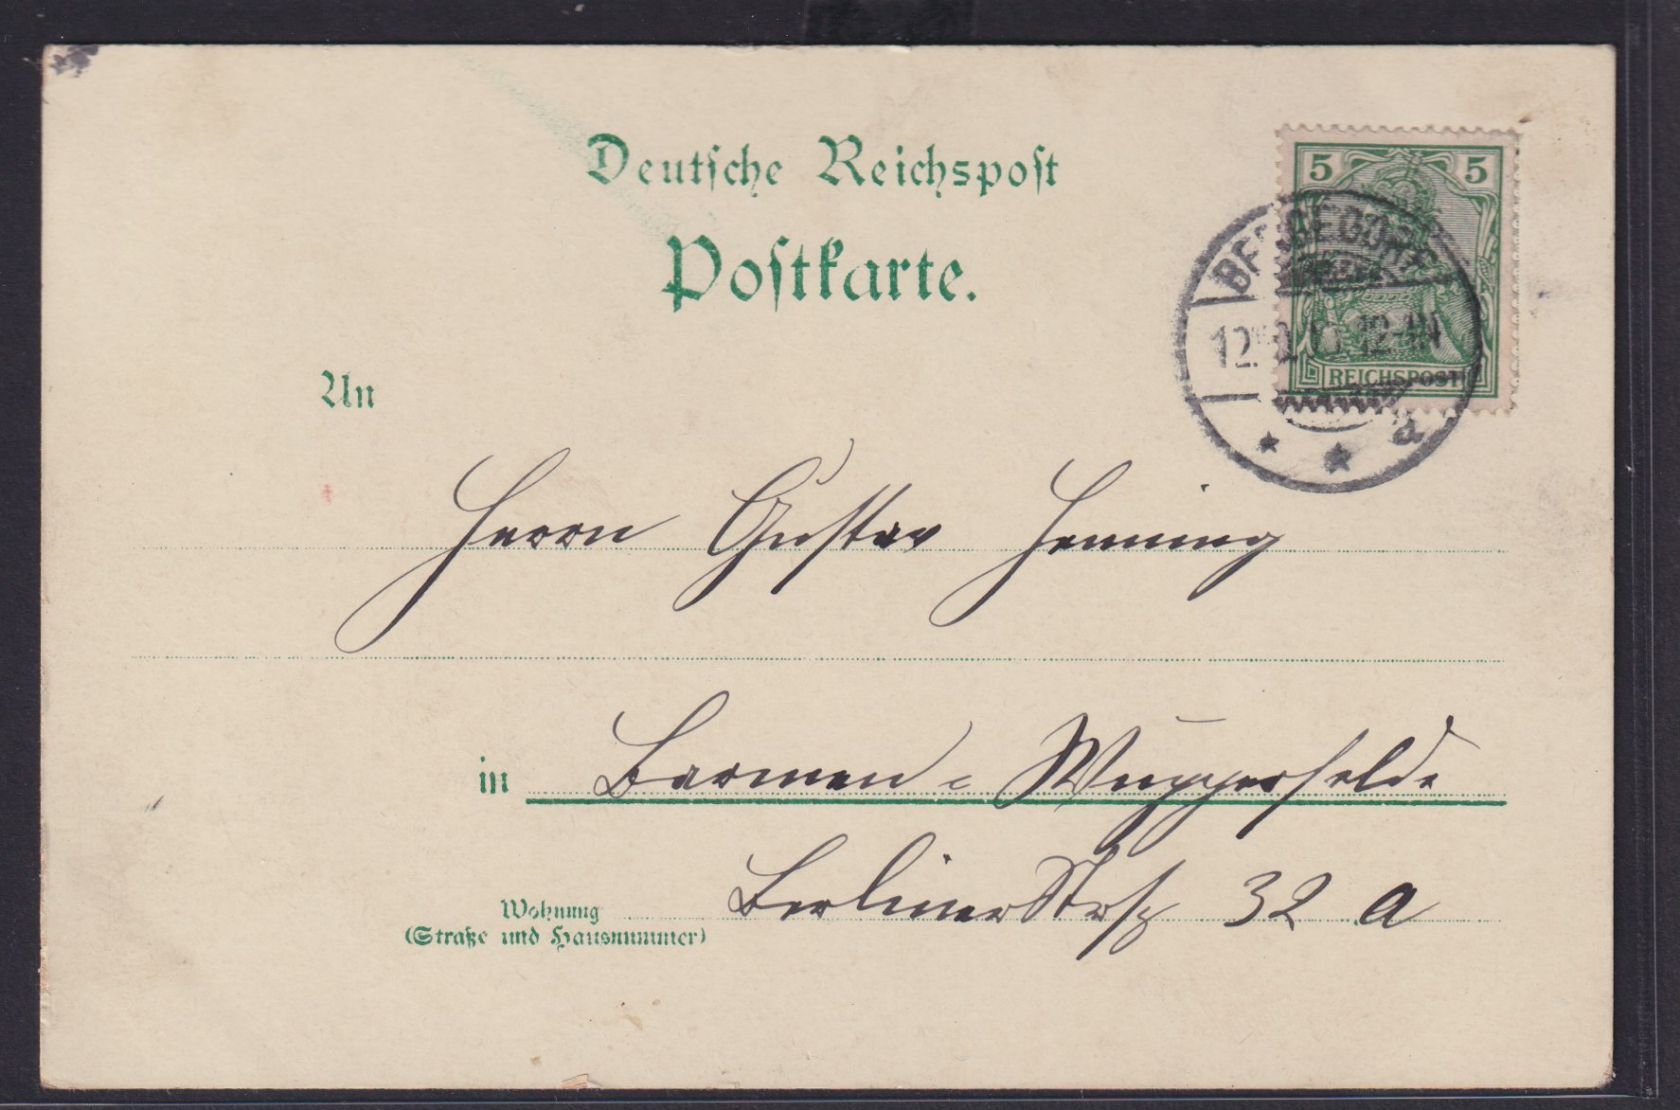 Deutsche Reichspost
Postkarte.
5 5
REICHSPOST
12-1N
a
An
Herrn Gustav Henning
in Barmen-Wupperfelde
Wohnung
(Straße und Hausnummer)
Berliner Strß 32 a